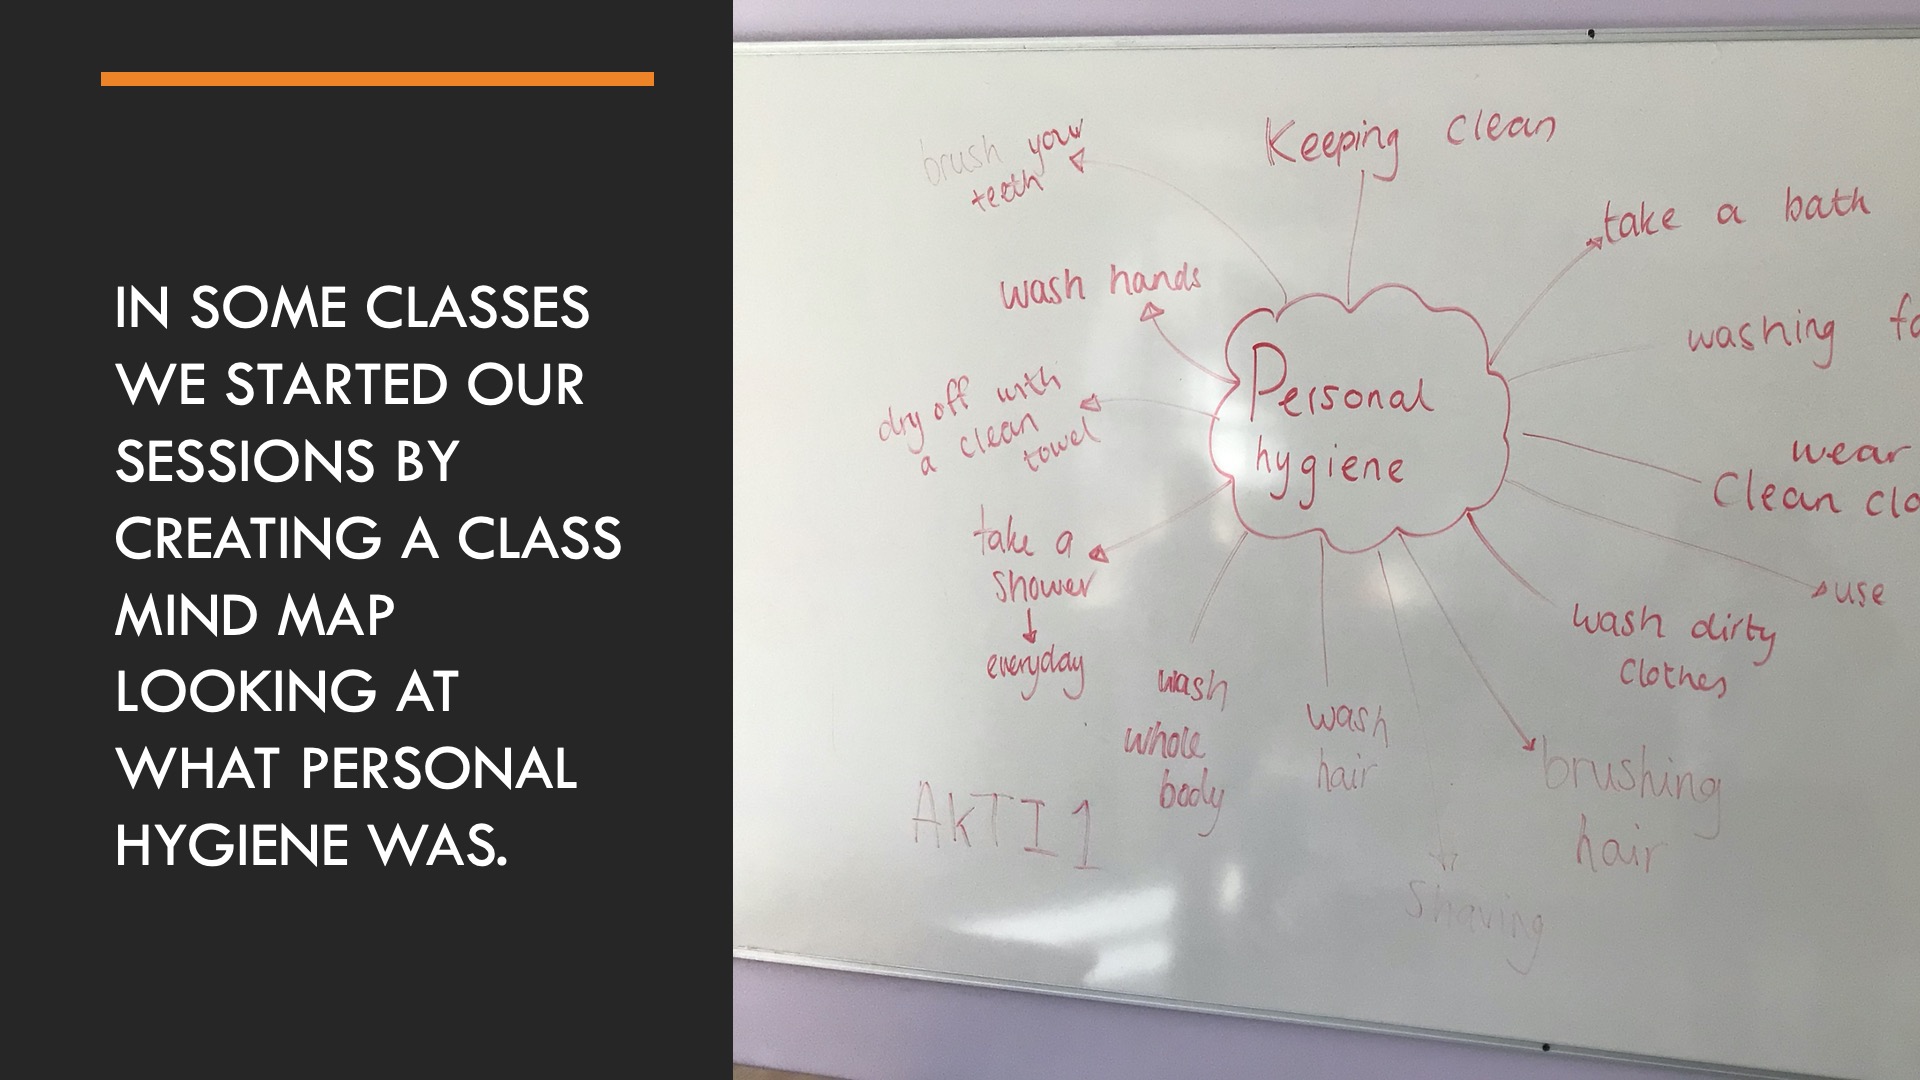 IN SOME CLASSES
WE STARTED OUR
SESSIONS BY
CREATING A CLASS
MIND MAP
LOOKING AT
WHAT PERSONAL
HYGIENE WAS.
Keeping clean
brush your
teeth
take a bath
wash hands
washing
Personal
hygiene
dry off with
a clean
towel
wear
Clean
take a
shower
everyday
use
wash dirty
clothes
wash
whole
body
wash
hair
brushing
hair
AKTI1
Shaving